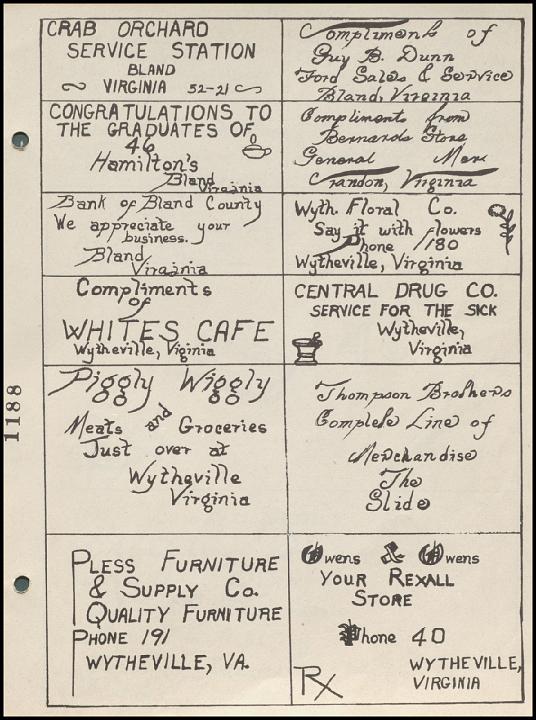 CRAB ORCHARD
SERVICE STATION
BLAND
VIRGINIA 52-21
Compliments of
Guy B. Dunn
Ford Sales & Service
Bland, Virginia
CONGRATULATIONS TO
THE GRADUATES OF
46
Hamilton's
Bland
Virginia
Compliments from
Bernards Store
General Mer
Crandon, Virginia
Bank of Bland County
We appreciate your
business.
Bland
Virginia
Wyth Floral Co.
Say it with flowers
Phone 180
Wytheville, Virginia
Compliments
of
WHITES CAFE
Wytheville, Viginia
CENTRAL DRUG CO.
SERVICE FOR THE SICK
Wytheville,
Virginia
Piggly Wiggly
Meats and Groceries
Just over at
Wytheville
Virginia
Thompson Brothers
Complete Line of
Merchandise
The
Slide
PLESS FURNITURE
& SUPPLY CO.
QUALITY FURNITURE
PHONE 191
WYTHEVILLE, VA.
Owens & Owens
YOUR REXALL
STORE
Phone 40
WYTHEVILLE,
VIRGINIA
Rx
1188